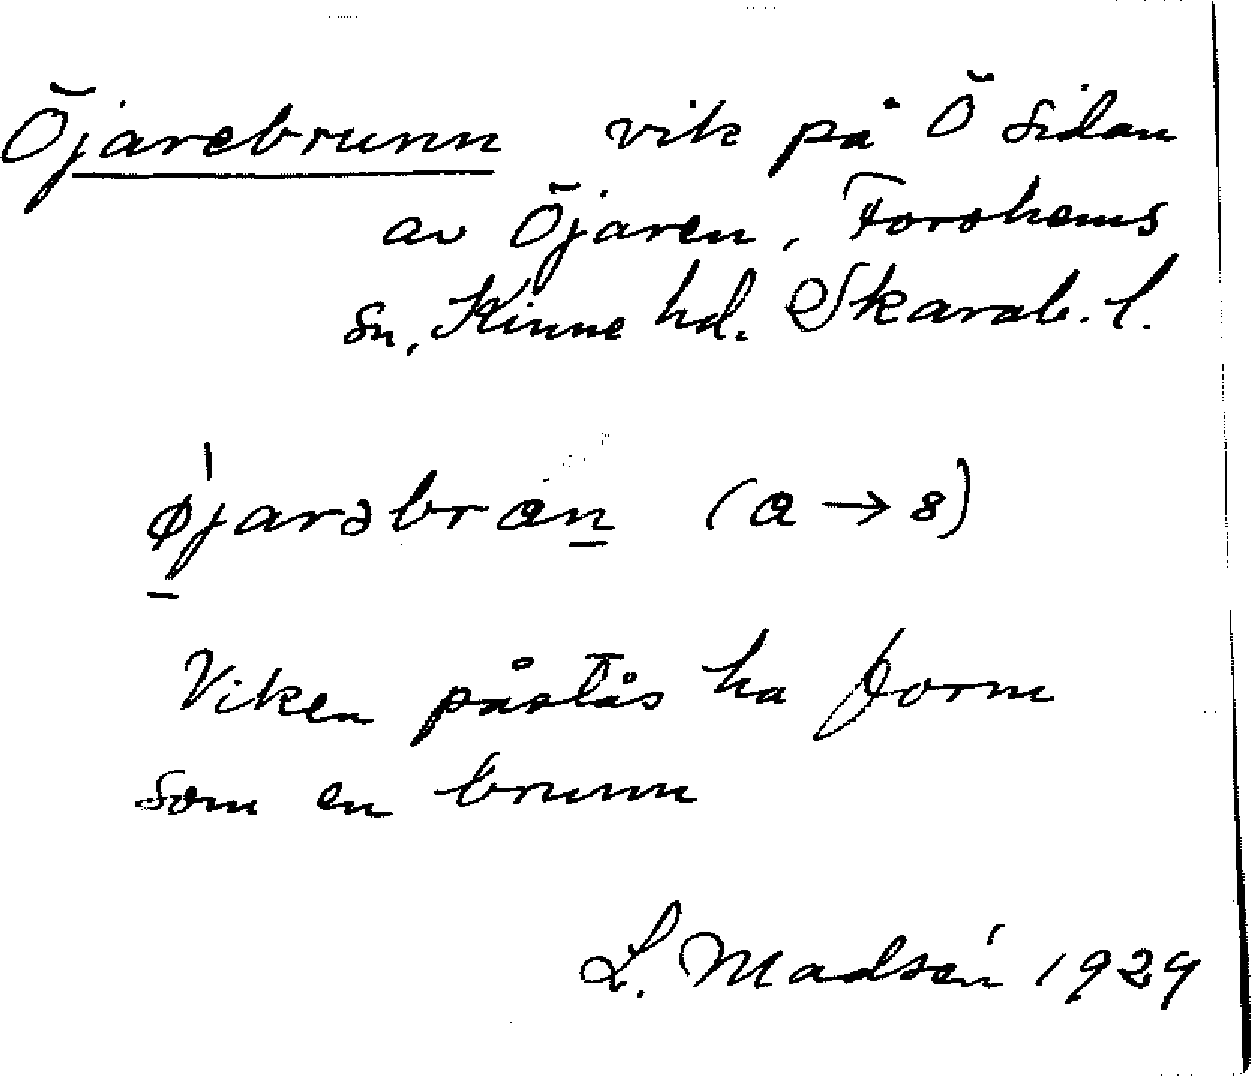 Öjarebrunn vik på Ö sidan
av Öjaren, Forshems
sn, Kinne hd. Skarab. l.
øjarəbrαn (α → 8)
Viken påstås ha form
som en brunn
L. Madsén 1929